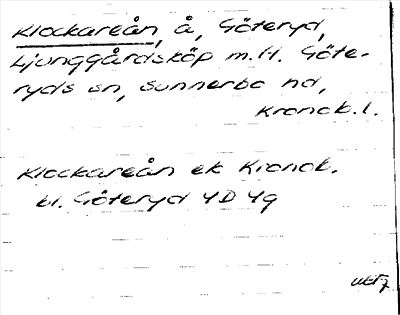 Klockareån, å, Göteryd,
Ljunggårdsköp m.H. Göte-
ryds sn, Sunnerbo hd,
Kronob.l.
Klockareån ek Kronob.
bl. Göteryd 4D 4g